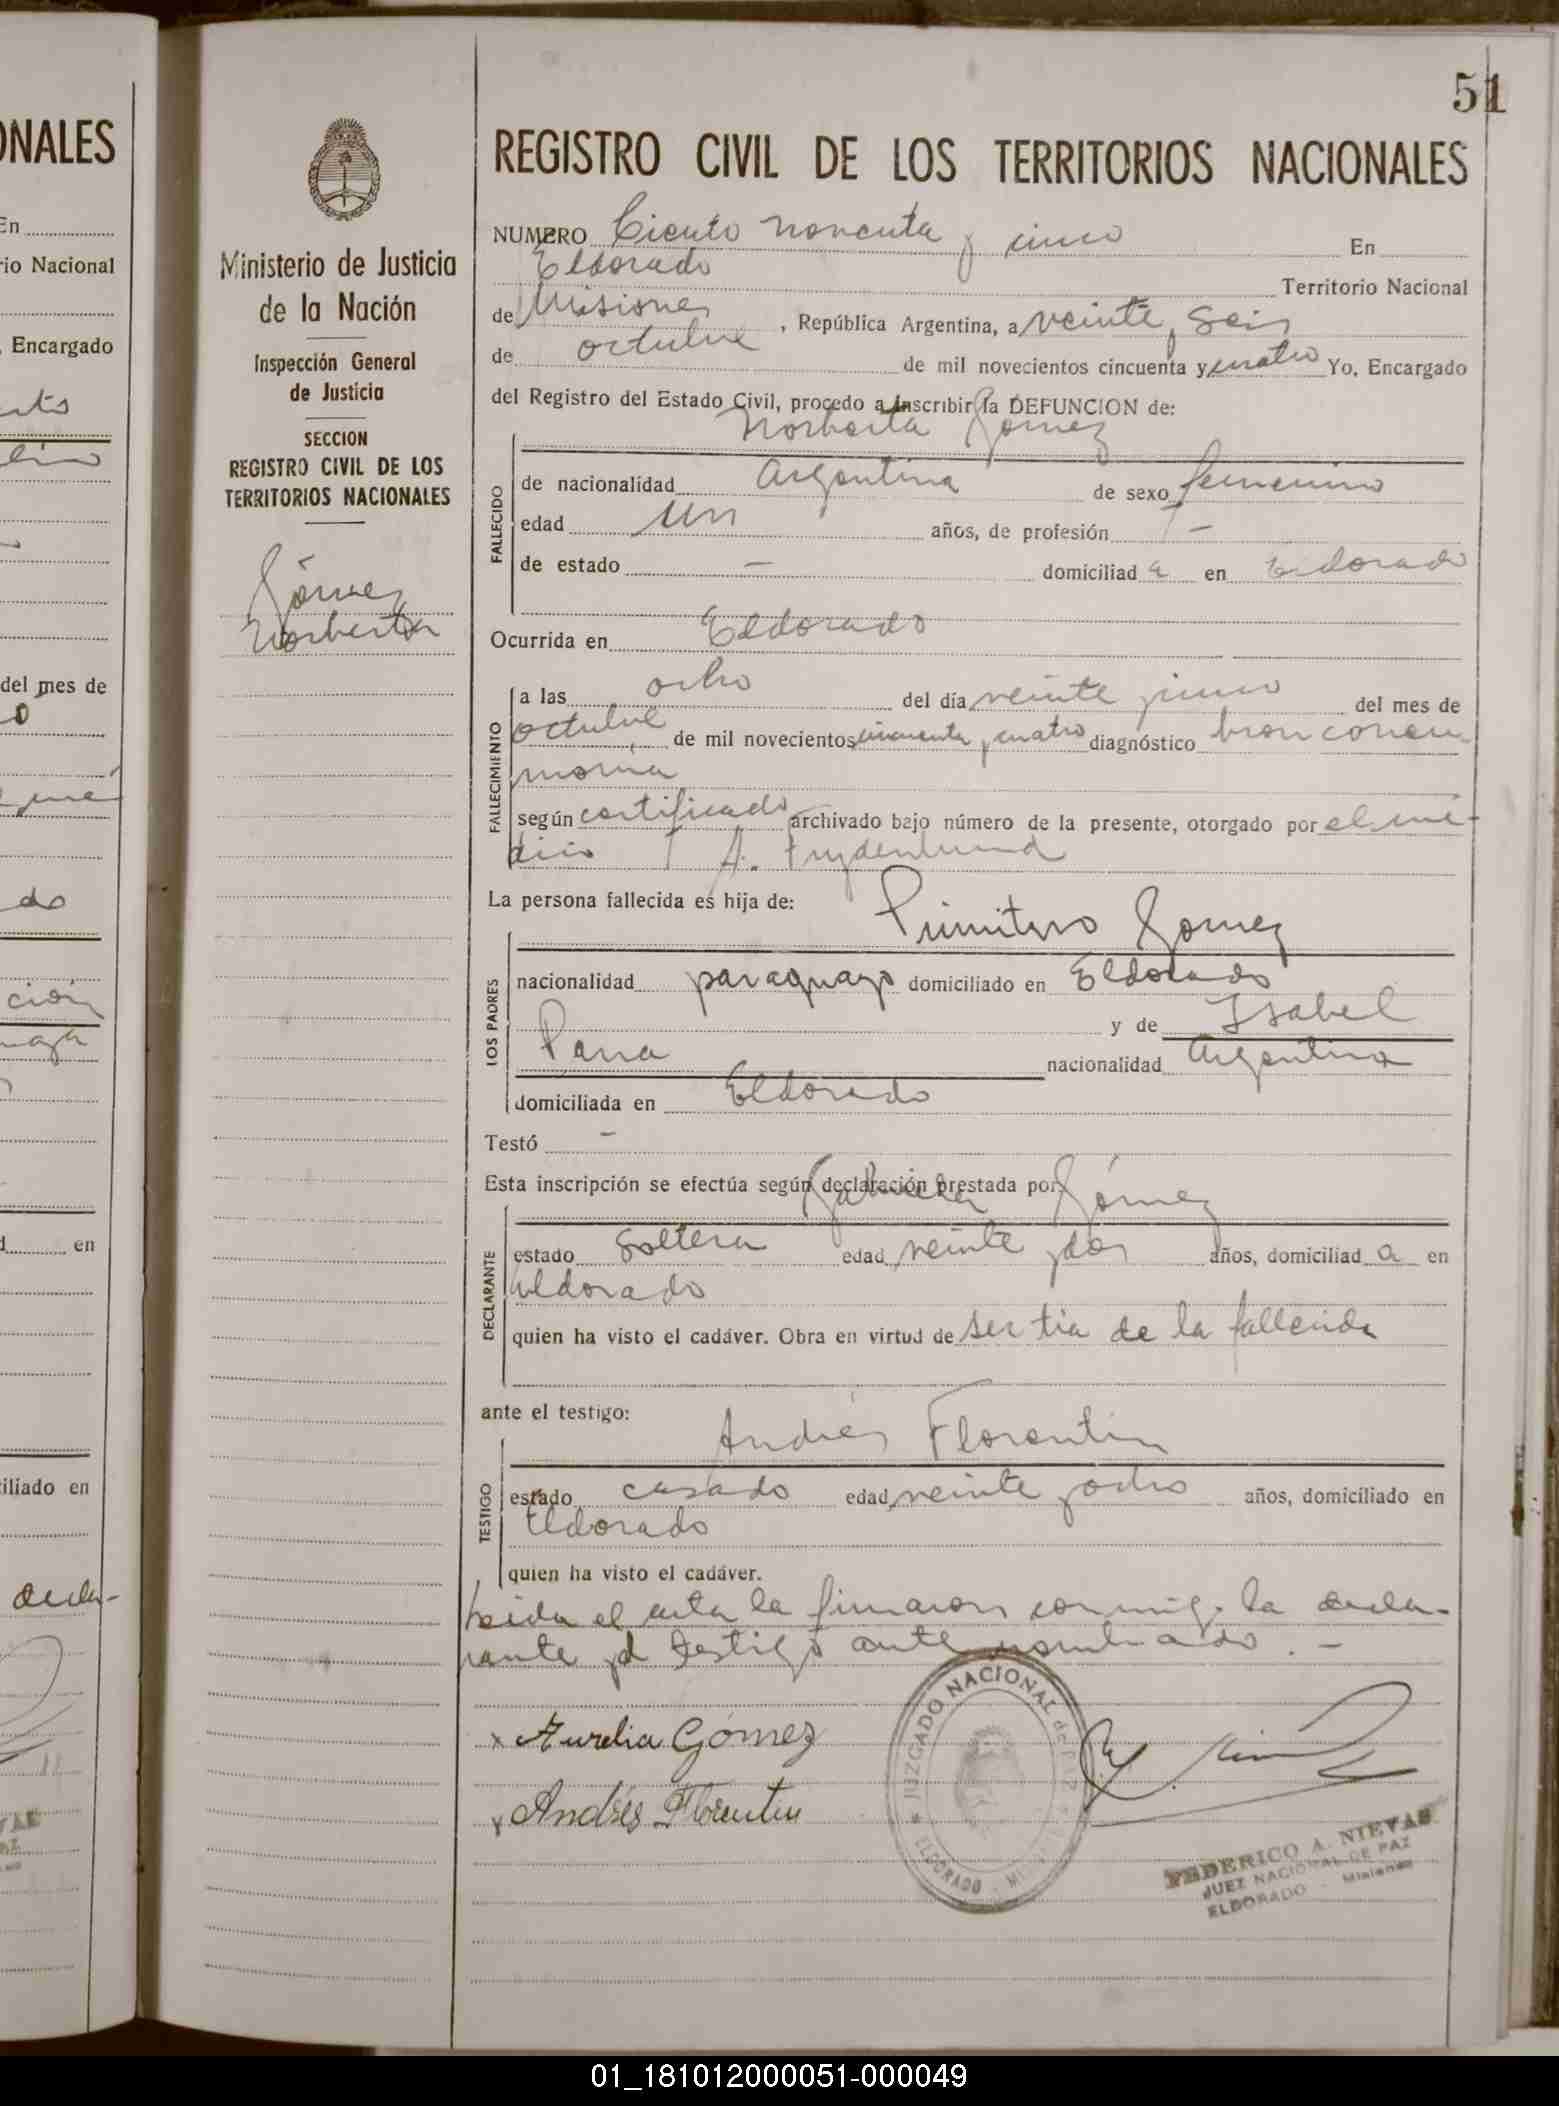 51
REGISTRO CIVIL DE LOS TERRITORIOS NACIONALES
Ministerio de Justicia
de la Nación
Inspección General
de Justicia
SECCION
REGISTRO CIVIL DE LOS
TERRITORIOS NACIONALES
Gómez
Norberta
NUMERO Ciento noventa y cinco En
Eldorado Territorio Nacional
de Misiones, República Argentina, a veinte y seis
de octubre de mil novecientos cincuenta y cuatro Yo, Encargado
del Registro del Estado Civil, procedo a inscribir la DEFUNCION de:
Norberta Gomez
FALLECIDO
de nacionalidad Argentina de sexo femenino
edad un años, de profesión -
de estado - domiciliad a en Eldorado
Ocurrida en Eldorado
FALLECIMIENTO
a las ocho del día veinte y cinco del mes de
octubre de mil novecientos cincuenta y cuatro diagnóstico bronconeu-
monia
según certificado archivado bajo número de la presente, otorgado por el mé-
dico A. Frydenlund
La persona fallecida es hija de:
Primitivo Gomez
LOS PADRES
nacionalidad paraguayo domiciliado en Eldorado
y de Isabel
Parra nacionalidad Argentina
domiciliada en Eldorado
Testó -
Esta inscripción se efectúa según declaración prestada por
Gómez
DECLARANTE
estado soltera edad veinte y dos años, domiciliad a en
eldorado
quien ha visto el cadáver. Obra en virtud de ser tia de la fallecida
ante el testigo:
Andrés Florentin
TESTIGO
estado casado edad veinte y ocho años, domiciliado en
Eldorado
quien ha visto el cadáver.
Leida el acta la firmaron conmigo la decla-
rante y el testigo ante nombrado. -
x Aurelia Gómez
x Andrés Florentin
JUZGADO NACIONAL de PAZ
ELDORADO
FEDERICO A. NIEVAS
JUEZ NACIONAL DE PAZ
ELDORADO - Misiones
ONALES
En
rio Nacional
, Encargado
del mes de
en
iliado en
decla-
01_181012000051-000049